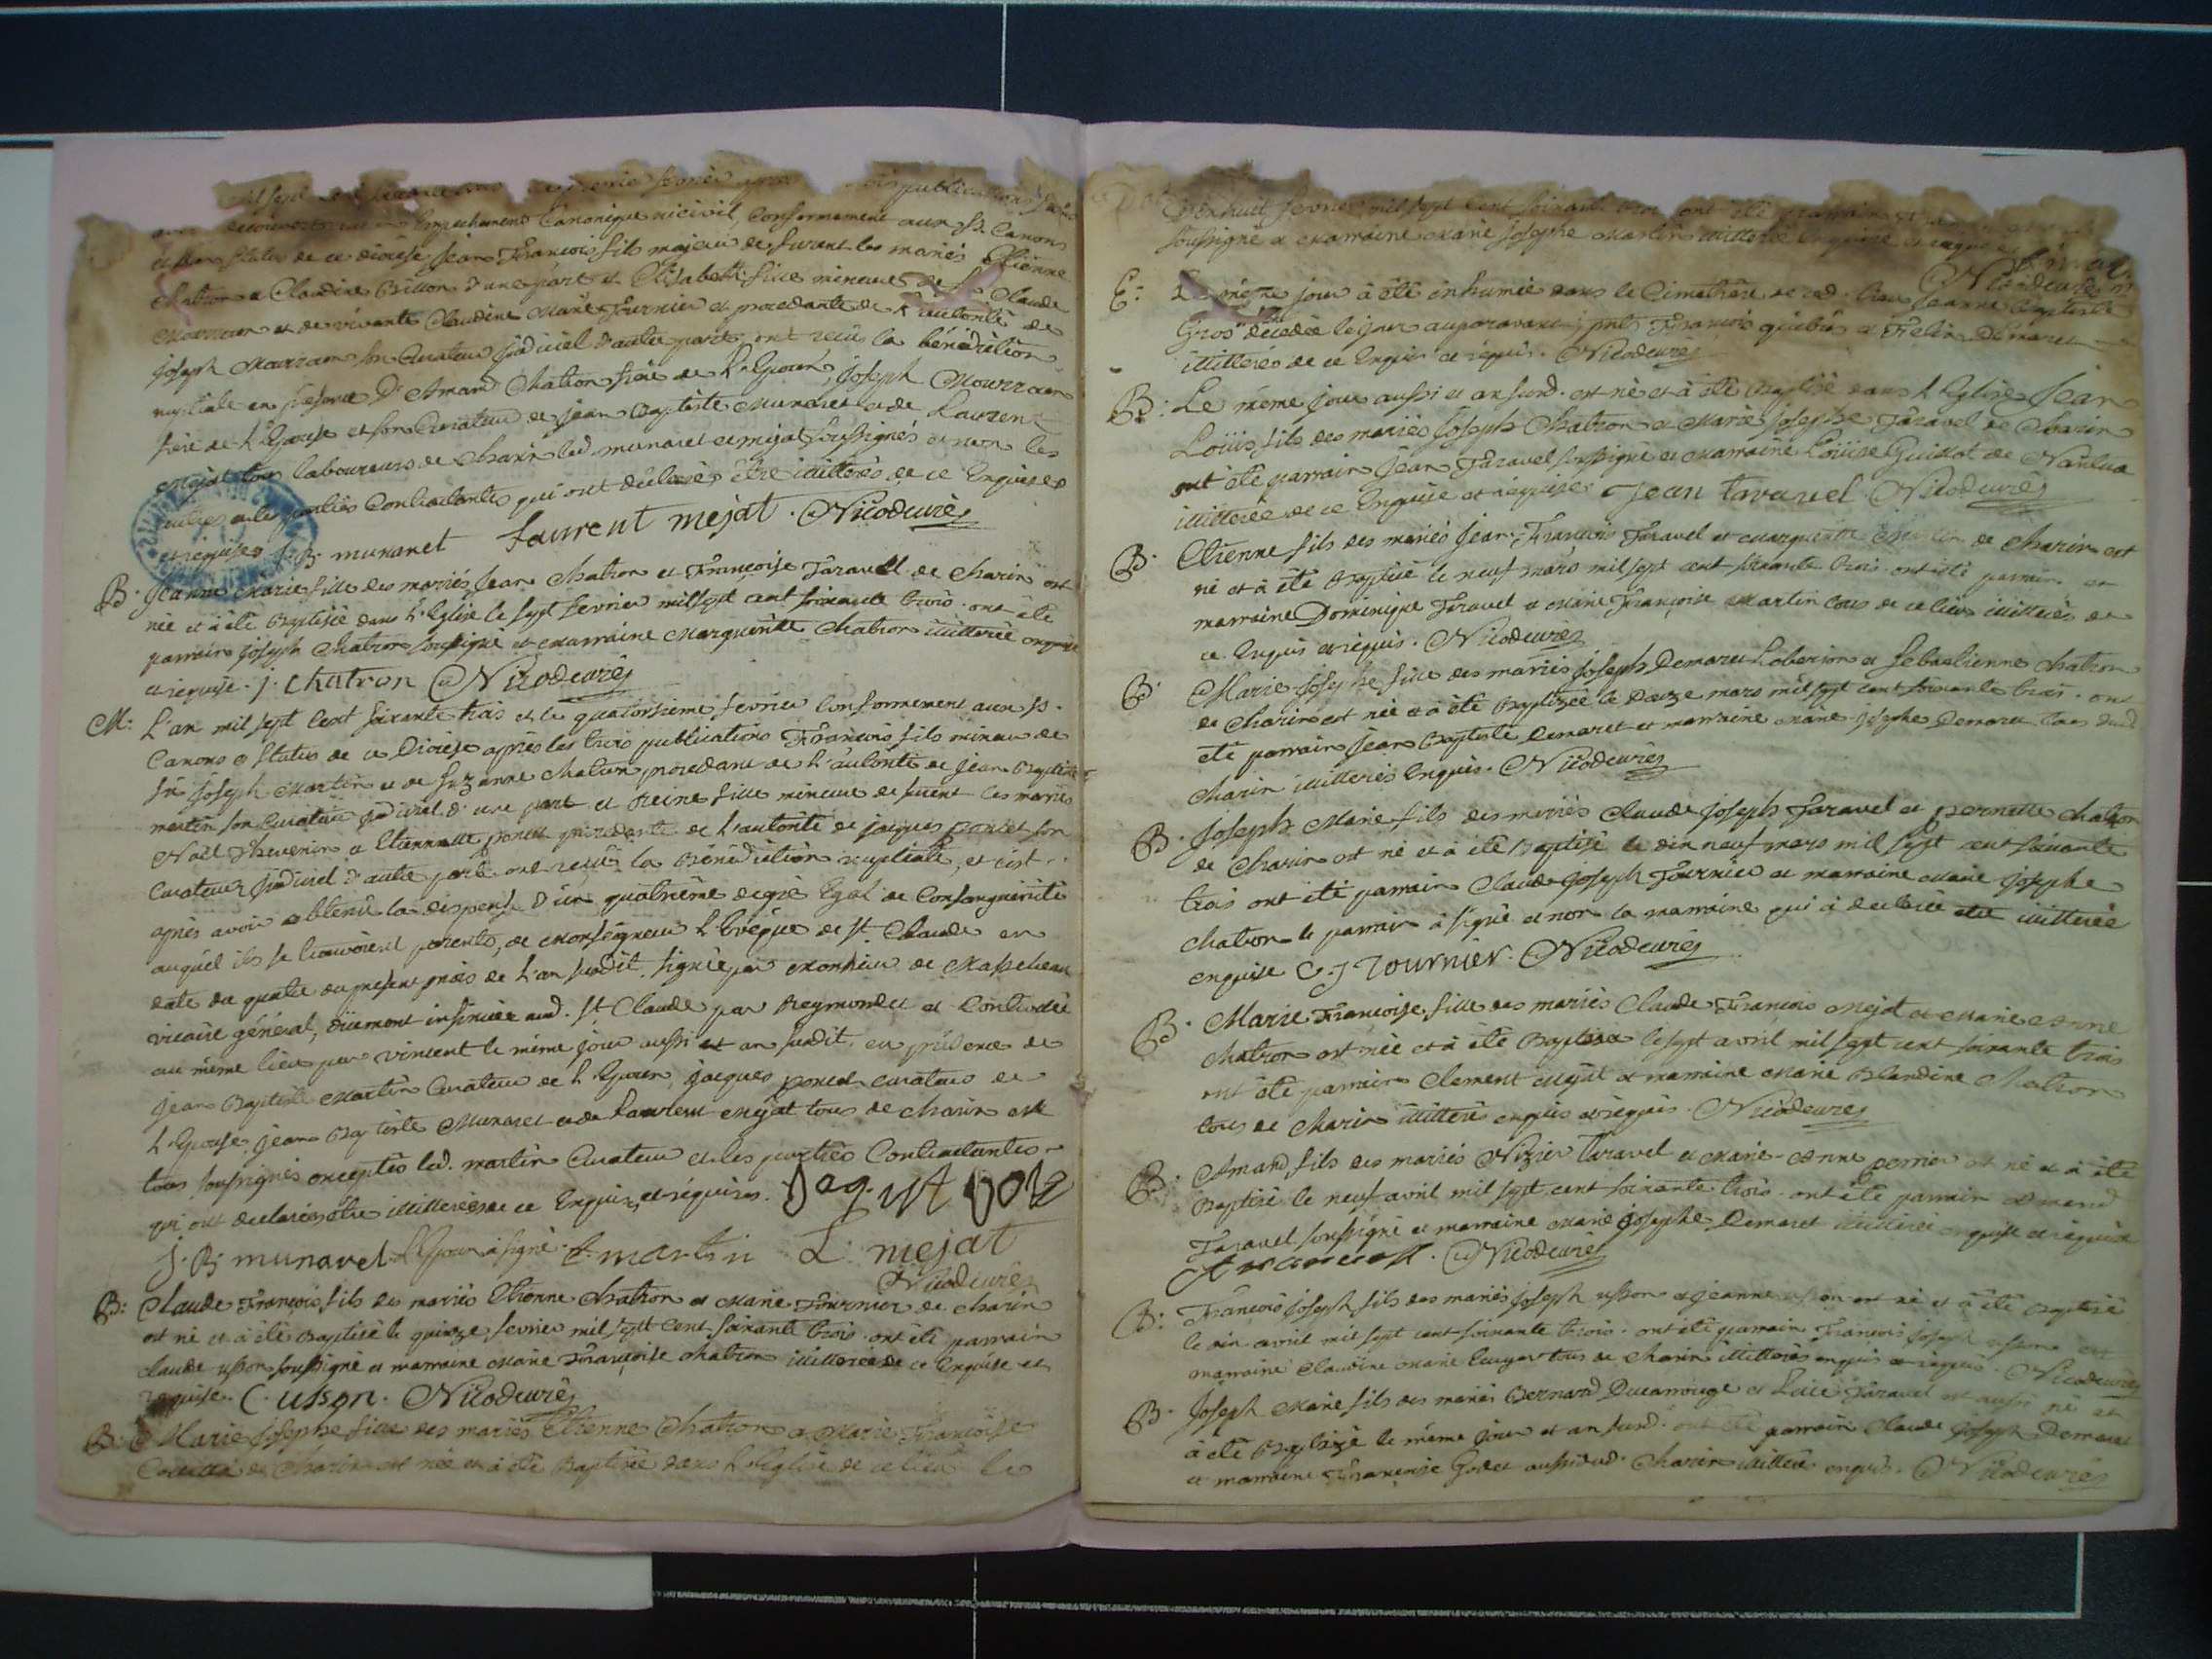 mil sept cent soixante trois publications sans
avoir découvert aucun Empechement Canonique ni civil, Conformement aux Sts Canons
et Statuts de ce diocèse Jean François fils majeur de furent les mariés Etienne
Chatron et Claudine Brillon d'une part et Elisabeth fille mineure de fu Claude
et de vivante Claudine Marie Fournier et procedante de l'autorité de
Joseph son Curateur judiciel d'autre part, ont reçu la bénédiction
nuptiale en présence D'Amand Chatron frère de l'Epoux, Joseph
frère de l'Epouse et son Curateur de Jean Baptiste Munaret et de Laurent
Mejat tous laboureurs de Charix led. munaret et mejat soussignés et non les
autres et les parties Contractantes qui ont déclarés être illitterés de ce Enquises
et requises J. B. munaret Laurent mejat. Nicod curé
B. Jeanne Marie fille des mariés Jean Chatron et Françoise Taravel de Charix est
née et à été Baptisée dans l'Eglise le sept fevrier mil sept cent soixante trois. ont été
parrain Joseph Chatron soussigné et marraine Marguerite Chatron illitterée enquise
et requise. J. Chatron Nicod curé
M: L'an mil sept Cent soixante trois et le quatorsieme fevrier Conformement aux Sts.
Canons & Statuts de ce Diocèse après les trois publications François fils mineur de
fu Joseph Martin et de Suzanne Chatron, procedant de l'autorité de Jean Baptiste
martin son Curateur judiciel d'une part et Reine fille mineure de furent les mariés
Noël Thevenin et Etiennette poncet procedante de l'autorité de jacques poncet son
Curateur judiciel d'autre part ont reçus la Bénédiction nuptiale, et c'est
après avoir obtenu la dispense d'un quatrième degré Egal de Consanguinité
auquel ils se trouvoient parents, de Monseigneur l'Evêque de St Claude en
date du quatre du present mois de l'an susdit. signée par Monsieur de
vicaire général, düement insinuée aud. St Claude par Reymondet et Controllé
au même lieu par vincent le même jour aussi et an susdit. en présence de
Jean Baptiste Martin Curateur de l'Epoux, jacques poncet curateur de
l'Epouse, Jean Baptiste Munaret et de Laurent Mejat tous de Charix et
tous soussignés exceptés led. martin Curateur et les parties Contractantes
qui ont declarés être illitterées de ce Enquis, et réquises.
J. B. munaret L'Epoux à signé f. martin L. mejat
Nicod curé
B: Claude François fils des mariés Etienne Chatron et Marie Fournier de Charix
est né et à été Baptisé le quinze fevrier mil sept cent soixante trois. ont été parrain
Claude usson soussigné et marraine Marie Françoise Chatron illitterée de ce Enquise et
requise. C. usson. Nicod curé
B: Marie Josephe fille des mariés Etienne Chatron et Marie Françoise
de Charix est née et à été Baptisée dans l'Eglise de ce lieu le
Dixhuit fevrier mil sept cent soixante trois ont été parrain
soussigné et Marraine Marie Josephe Martin illitterée Enquise et requise
Nicod curé
E: Le même jour à été inhumée dans le Cimetière de ced. lieu Jeanne Baptiste
Gros décédée le jour auparavant, pnts François et Felix Démaret
illitteres de ce Enquis et requis. Nicod curé
B: Le même jour aussi et an susd. est né et à été Baptisé dans l'Eglise Jean
Loüis fils des mariés Joseph Chatron et Marie Josephe Taravel de Charix
ont été parrain Jean Taravel soussigné et Marraine Loüise Guillot de Nantua
illitterée de ce Enquise et requise. Jean taravel Nicod curé
B. Etienne fils des mariés Jean François Taravel et Marguerite de Charix est
né et à été Baptisé le neuf mars mil sept cent soixante trois. ont été parrain et
marraine Dominique Taravel et Marie Françoise Martin tous de ce lieu illitterés de
ce Enquis et requis. Nicod curé
B. Marie Josephe fille des mariés Joseph Demaret Loberion et Sebastienne Chatron
de Charix est née et à été Baptizée le Douze mars mil sept cent soixante trois. ont
été parrain Jean Baptiste Demaret et marraine Marie Josephe Demaret tous dud
Charix illitterés Enquis. Nicod curé
B. Joseph Marie fils des mariés Claude Joseph Taravel et pernette Chatron
de Charix est né et à été Baptisé le dix neuf mars mil sept cent soixante
trois ont été parrain Claude Joseph Fournier et marraine Marie Josephe
Chatron le parrain à signé et non la marraine qui à declarée etre illitterée
enquise C. J Tournier. Nicod curé
B. Marie Françoise fille des mariés Claude François Mejat et Marie Anne
Chatron est née et à été Baptisée le sept avril mil sept cent soixante trois
ont été parrain Clement Mejat et marraine Marie Blandine Chatron
tous de Charix illitterés enquis et requis. Nicod curé
B: Amand fils des mariés Nizier Taravel et Marie-Anne perrier est né et à été
Baptisé le neuf avril mil sept cent soixante trois. ont été parrain Amand
Taravel soussigné et marraine Marie Josephe Demaret illitterée enquise et requise
Nicod curé
B: François Joseph fils des mariés Joseph usson et Jeanne usson est né et à été Baptisé
le dix avril mil sept cent soixante trois. ont été parrain François Joseph usson et
marraine Claudine Marie tous de Charix illitterés enquis et requis. Nicod curé
B. Joseph Marie fils des mariés Bernard Ducarrouge et Luce Taravel est aussi né et
à été Baptizé le même jour et an susd. ont été parrain Claude Joseph Demaret
et marraine Françoise Godet aussi dud. Charix illitterés enquis. Nicod curé